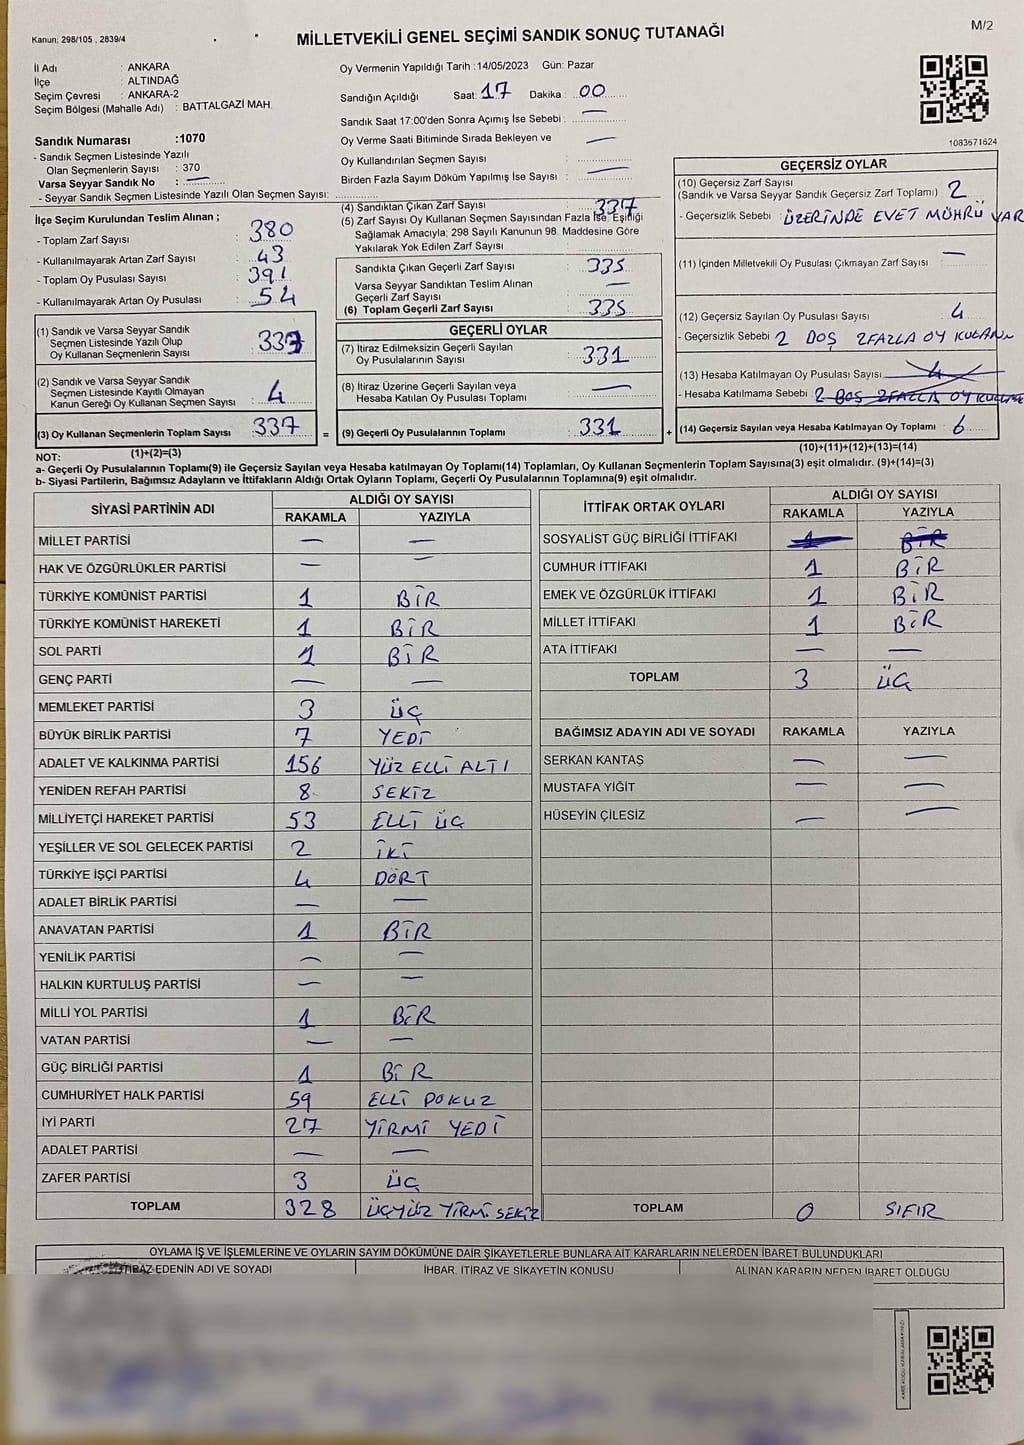 M/2
Kanun: 298/105 , 2839/4
MİLLETVEKİLİ GENEL SEÇİMİ SANDIK SONUÇ TUTANAĞI
İl Adı : ANKARA
İlçe : ALTINDAĞ
Seçim Çevresi : ANKARA-2
Seçim Bölgesi (Mahalle Adı) : BATTALGAZİ MAH.
Sandık Numarası :1070
- Sandık Seçmen Listesinde Yazılı
Olan Seçmenlerin Sayısı : 370
Varsa Seyyar Sandık No : —
- Seyyar Sandık Seçmen Listesinde Yazılı Olan Seçmen Sayısı:
Oy Vermenin Yapıldığı Tarih :14/05/2023 Gün: Pazar
Sandığın Açıldığı Saat: 17 Dakika : 00
Sandık Saat 17:00'den Sonra Açımış İse Sebebi : —
Oy Verme Saati Bitiminde Sırada Bekleyen ve —
Oy Kullandırılan Seçmen Sayısı :
Birden Fazla Sayım Döküm Yapılmış İse Sayısı : —
1083571624
İlçe Seçim Kurulundan Teslim Alınan ;
- Toplam Zarf Sayısı : 380
- Kullanılmayarak Artan Zarf Sayısı : 43
- Toplam Oy Pusulası Sayısı : 391
- Kullanılmayarak Artan Oy Pusulası : 54
(1) Sandık ve Varsa Seyyar Sandık
Seçmen Listesinde Yazılı Olup
Oy Kullanan Seçmenlerin Sayısı : 333
(2) Sandık ve Varsa Seyyar Sandık
Seçmen Listesinde Kayıtlı Olmayan
Kanun Gereği Oy Kullanan Seçmen Sayısı : 4
(3) Oy Kullanan Seçmenlerin Toplam Sayısı : 337
(1)+(2)=(3)
(4) Sandıktan Çıkan Zarf Sayısı : 337
(5) Zarf Sayısı Oy Kullanan Seçmen Sayısından Fazla İse, Eşitliği
Sağlamak Amacıyla; 298 Sayılı Kanunun 98. Maddesine Göre
Yakılarak Yok Edilen Zarf Sayısı :
Sandıkta Çıkan Geçerli Zarf Sayısı : 335
Varsa Seyyar Sandıktan Teslim Alınan
Geçerli Zarf Sayısı : —
(6) Toplam Geçerli Zarf Sayısı : 335
GEÇERLİ OYLAR
(7) İtiraz Edilmeksizin Geçerli Sayılan
Oy Pusulalarının Sayısı : 331
(8) İtiraz Üzerine Geçerli Sayılan veya
Hesaba Katılan Oy Pusulası Toplamı : —
= (9) Geçerli Oy Pusulalarının Toplamı : 331
GEÇERSİZ OYLAR
(10) Geçersiz Zarf Sayısı
(Sandık ve Varsa Seyyar Sandık Geçersiz Zarf Toplamı) : 2
- Geçersizlik Sebebi : ÜZERİNDE EVET MÜHRÜ VAR
(11) İçinden Milletvekili Oy Pusulası Çıkmayan Zarf Sayısı : —
(12) Geçersiz Sayılan Oy Pusulası Sayısı : 4
- Geçersizlik Sebebi : 2 BOŞ 2 FAZLA OY KULANN
(13) Hesaba Katılmayan Oy Pusulası Sayısı : 4
- Hesaba Katılmama Sebebi : 2 BOŞ 2 FAZLA OY
+ (14) Geçersiz Sayılan veya Hesaba Katılmayan Oy Toplamı : 6
(10)+(11)+(12)+(13)=(14)
NOT:
a- Geçerli Oy Pusulalarının Toplamı(9) ile Geçersiz Sayılan veya Hesaba katılmayan Oy Toplamı(14) Toplamları, Oy Kullanan Seçmenlerin Toplam Sayısına(3) eşit olmalıdır. (9)+(14)=(3)
b- Siyasi Partilerin, Bağımsız Adayların ve İttifakların Aldığı Ortak Oyların Toplamı, Geçerli Oy Pusulalarının Toplamına(9) eşit olmalıdır.
SİYASİ PARTİNİN ADI ALDIĞI OY SAYISI
RAKAMLA YAZIYLA
MİLLET PARTİSİ — —
HAK VE ÖZGÜRLÜKLER PARTİSİ — —
TÜRKİYE KOMÜNİST PARTİSİ 1 BİR
TÜRKİYE KOMÜNİST HAREKETİ 1 BİR
SOL PARTİ 1 BİR
GENÇ PARTİ — —
MEMLEKET PARTİSİ 3 ÜÇ
BÜYÜK BİRLİK PARTİSİ 7 YEDİ
ADALET VE KALKINMA PARTİSİ 156 YÜZ ELLİ ALTI
YENİDEN REFAH PARTİSİ 8 SEKİZ
MİLLİYETÇİ HAREKET PARTİSİ 53 ELLİ ÜÇ
YEŞİLLER VE SOL GELECEK PARTİSİ 2 İKİ
TÜRKİYE İŞÇİ PARTİSİ 4 DÖRT
ADALET BİRLİK PARTİSİ — —
ANAVATAN PARTİSİ 1 BİR
YENİLİK PARTİSİ — —
HALKIN KURTULUŞ PARTİSİ — —
MİLLİ YOL PARTİSİ 1 BİR
VATAN PARTİSİ — —
GÜÇ BİRLİĞİ PARTİSİ 1 BİR
CUMHURİYET HALK PARTİSİ 59 ELLİ DOKUZ
İYİ PARTİ 27 YİRMİ YEDİ
ADALET PARTİSİ — —
ZAFER PARTİSİ 3 ÜÇ
TOPLAM 328 ÜÇYÜZ YİRMİ SEKİZ
İTTİFAK ORTAK OYLARI ALDIĞI OY SAYISI
RAKAMLA YAZIYLA
SOSYALİST GÜÇ BİRLİĞİ İTTİFAKI 1 BİR
CUMHUR İTTİFAKI 1 BİR
EMEK VE ÖZGÜRLÜK İTTİFAKI 1 BİR
MİLLET İTTİFAKI 1 BİR
ATA İTTİFAKI — —
TOPLAM 3 ÜÇ
BAĞIMSIZ ADAYIN ADI VE SOYADI RAKAMLA YAZIYLA
SERKAN KANTAŞ — —
MUSTAFA YİĞİT — —
HÜSEYİN ÇİLESİZ — —
TOPLAM 0 SIFIR
OYLAMA İŞ VE İŞLEMLERİNE VE OYLARIN SAYIM DÖKÜMÜNE DAİR ŞİKAYETLERLE BUNLARA AİT KARARLARIN NELERDEN İBARET BULUNDUKLARI
İTİRAZ EDENİN ADI VE SOYADI İHBAR, İTİRAZ VE ŞİKAYETİN KONUSU ALINAN KARARIN NEDEN İBARET OLDUĞU